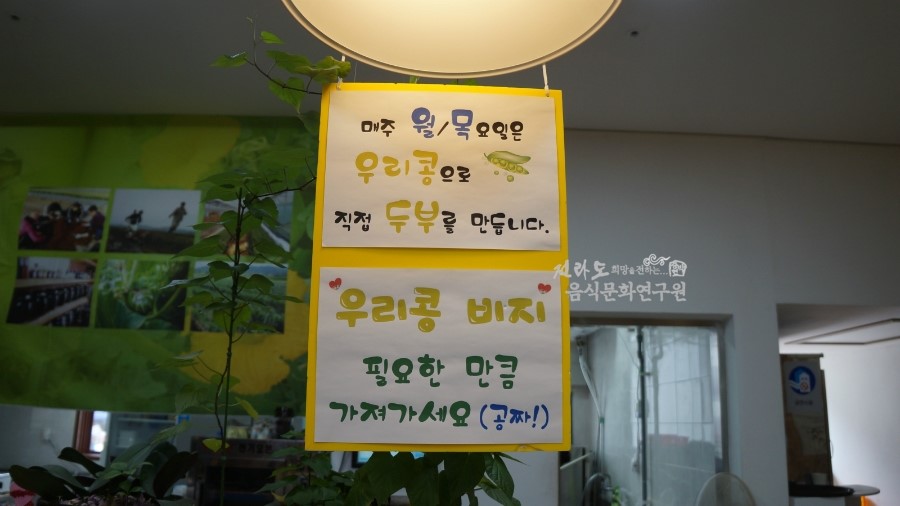 매주 월/목요일은
우리콩으로
직접 두부를 만듭니다.
우리콩 비지
필요한 만큼
가져가세요 (공짜!)
전라도 희망을전하는...
음식문화연구원